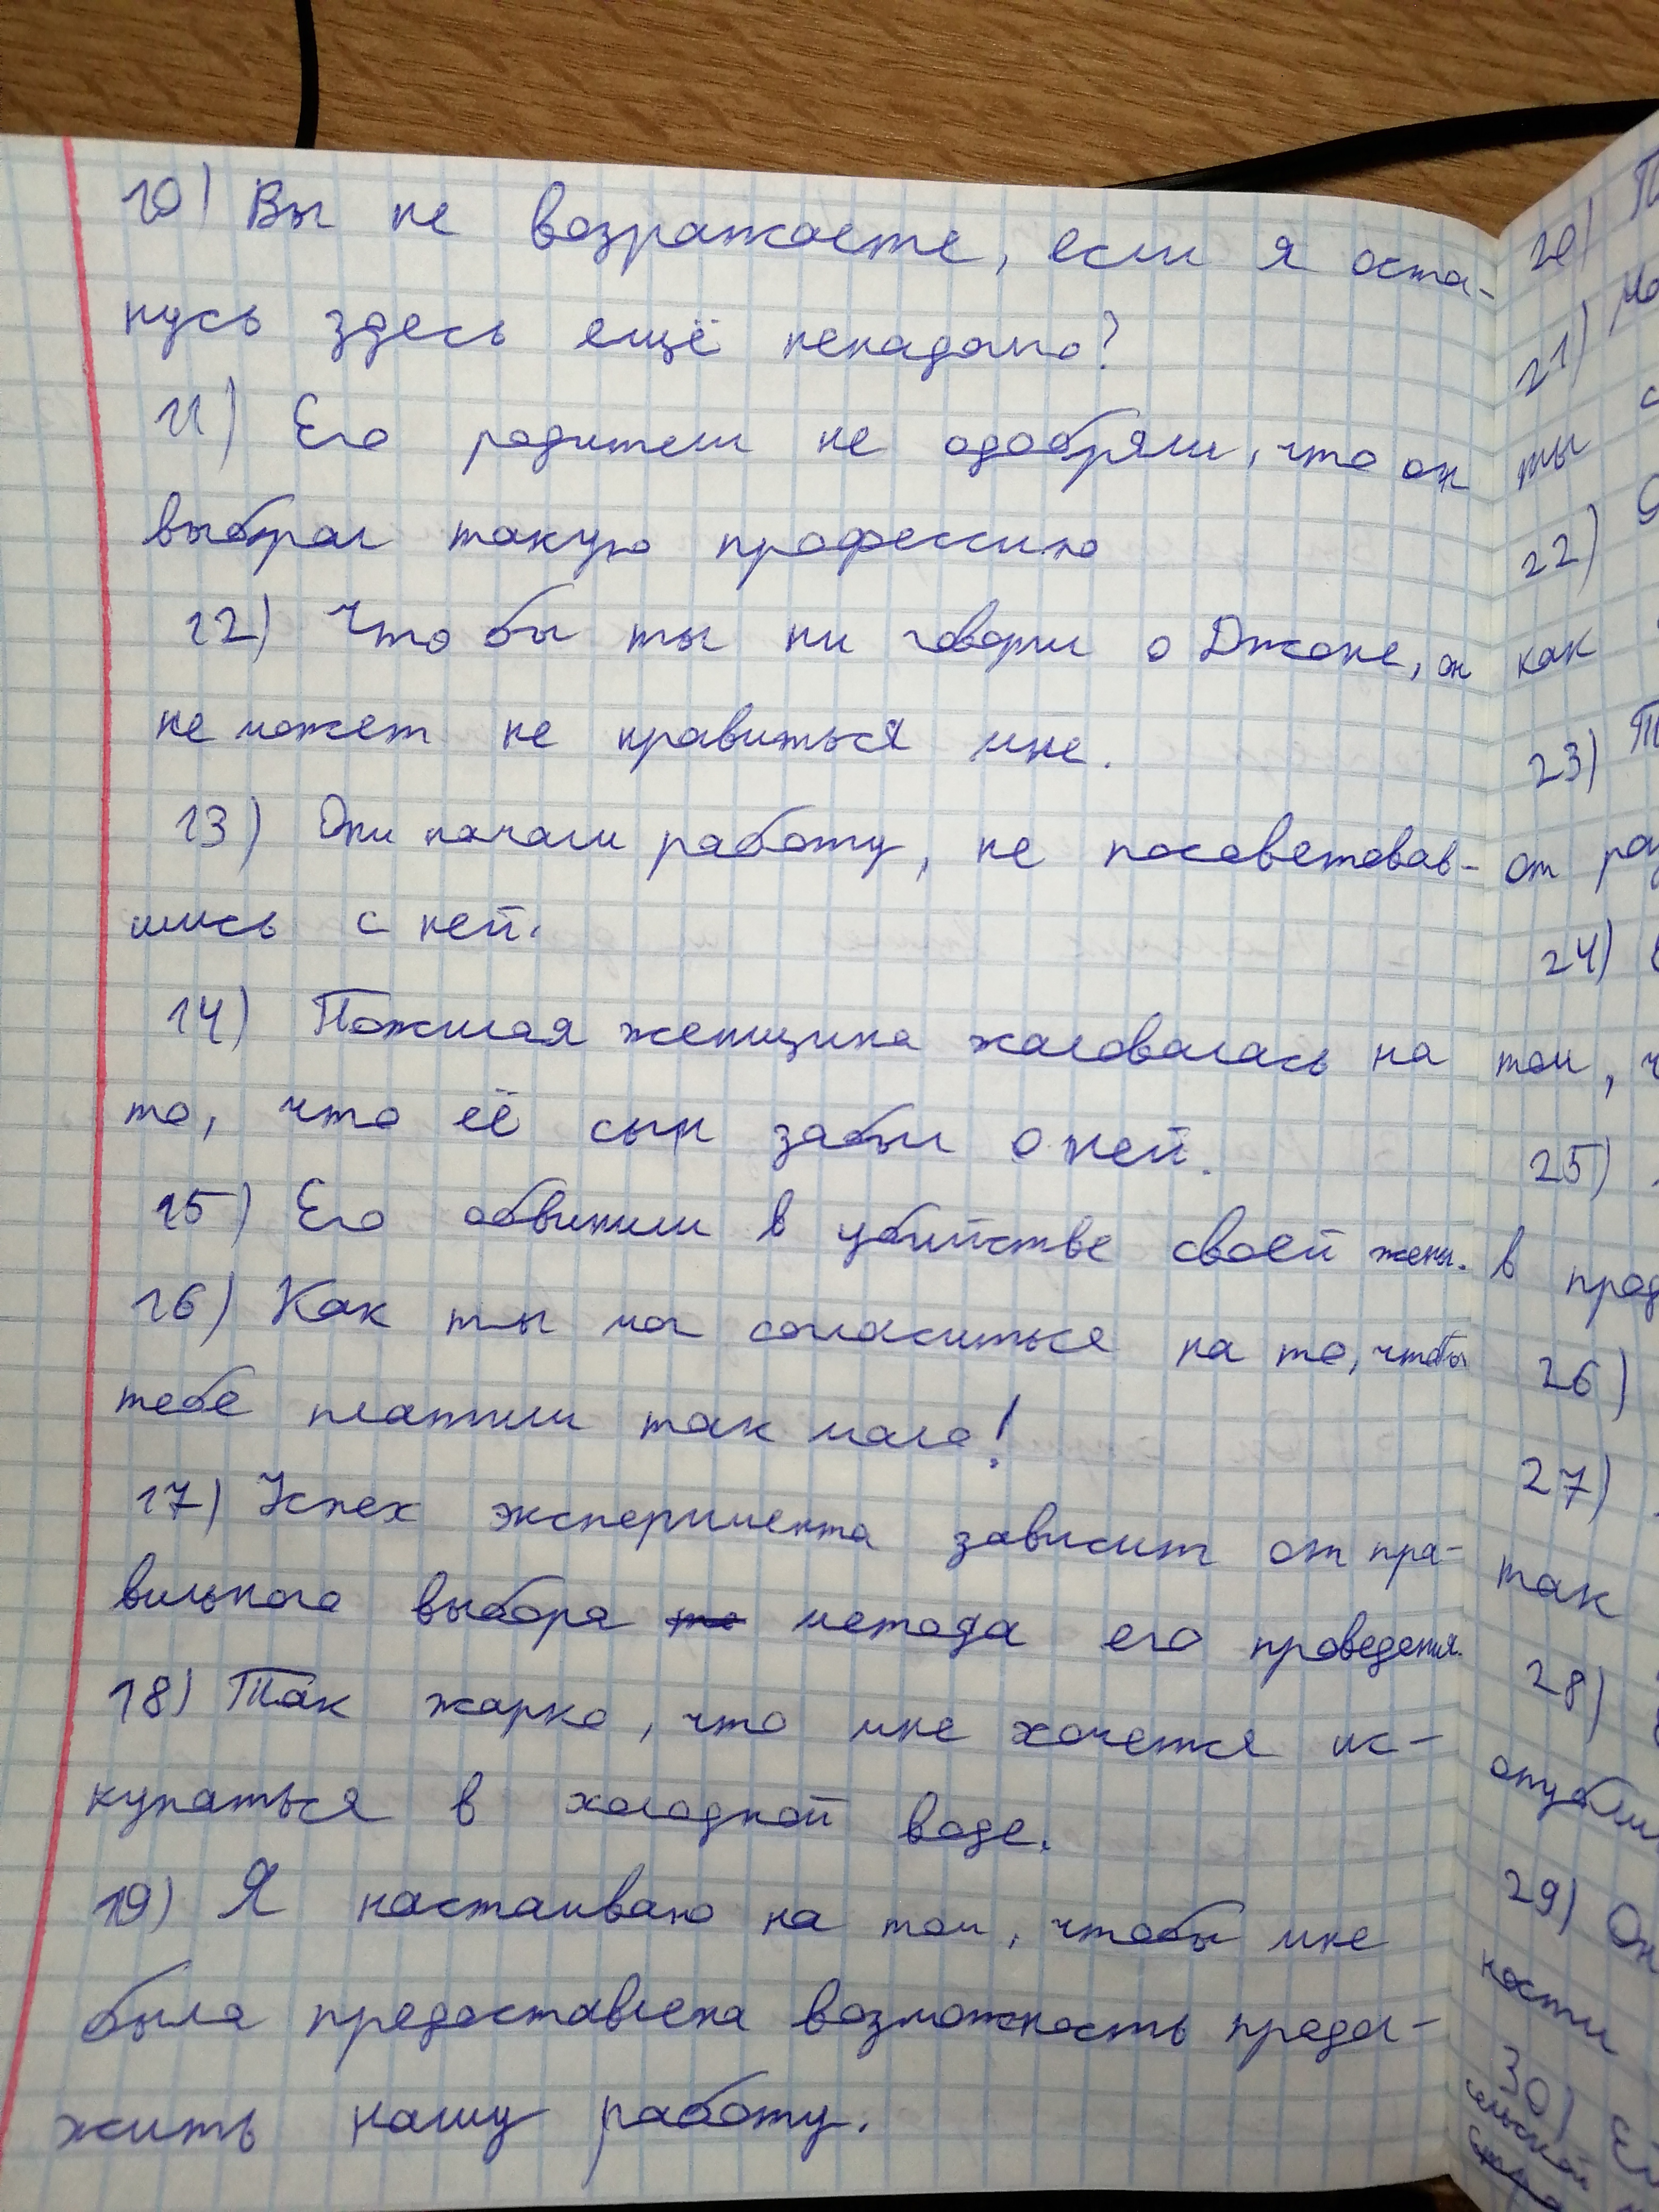 10) Вы не возражаете, если я оста-
нусь здесь ещё ненадолго?
11) Его родители не одобряли, что он
выбрал такую профессию
12) Что бы ты ни говорил о Джоне, он
не может не нравиться мне.
13) Они начали работу, не посоветовав-
шись с ней.
14) Пожилая женщина жаловалась на
то, что её сын забыл о ней.
15) Его обвинили в убийстве своей жены.
16) Как ты мог согласиться на то, чтобы
тебе платили так мало!
17) Успех эксперимента зависит от пра-
вильного выбора метода его проведения.
18) Так жарко, что мне хочется ис-
купаться в холодной воде.
19) Я настаиваю на том, чтобы мне
была предоставлена возможность продол-
жить нашу работу.
20)
21)
ты
22)
как
23)
от
24)
том, ч
25)
в прод
26)
27)
так
28)
опубли
29) Он
ности
30)